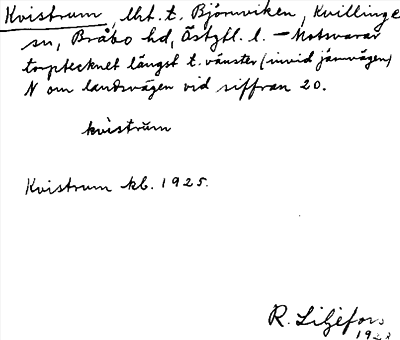 Kvistrum, lht. t. Björnviken, Kvillinge
sn, Bråbo hd, Östgtl. l. – Motsvarar
torptecknet längst t. vänster (invid järnvägen)
N om landsvägen vid siffran 20.
kvistrŭm
Kvistrum kb. 1925.
R. Liljefors
1928